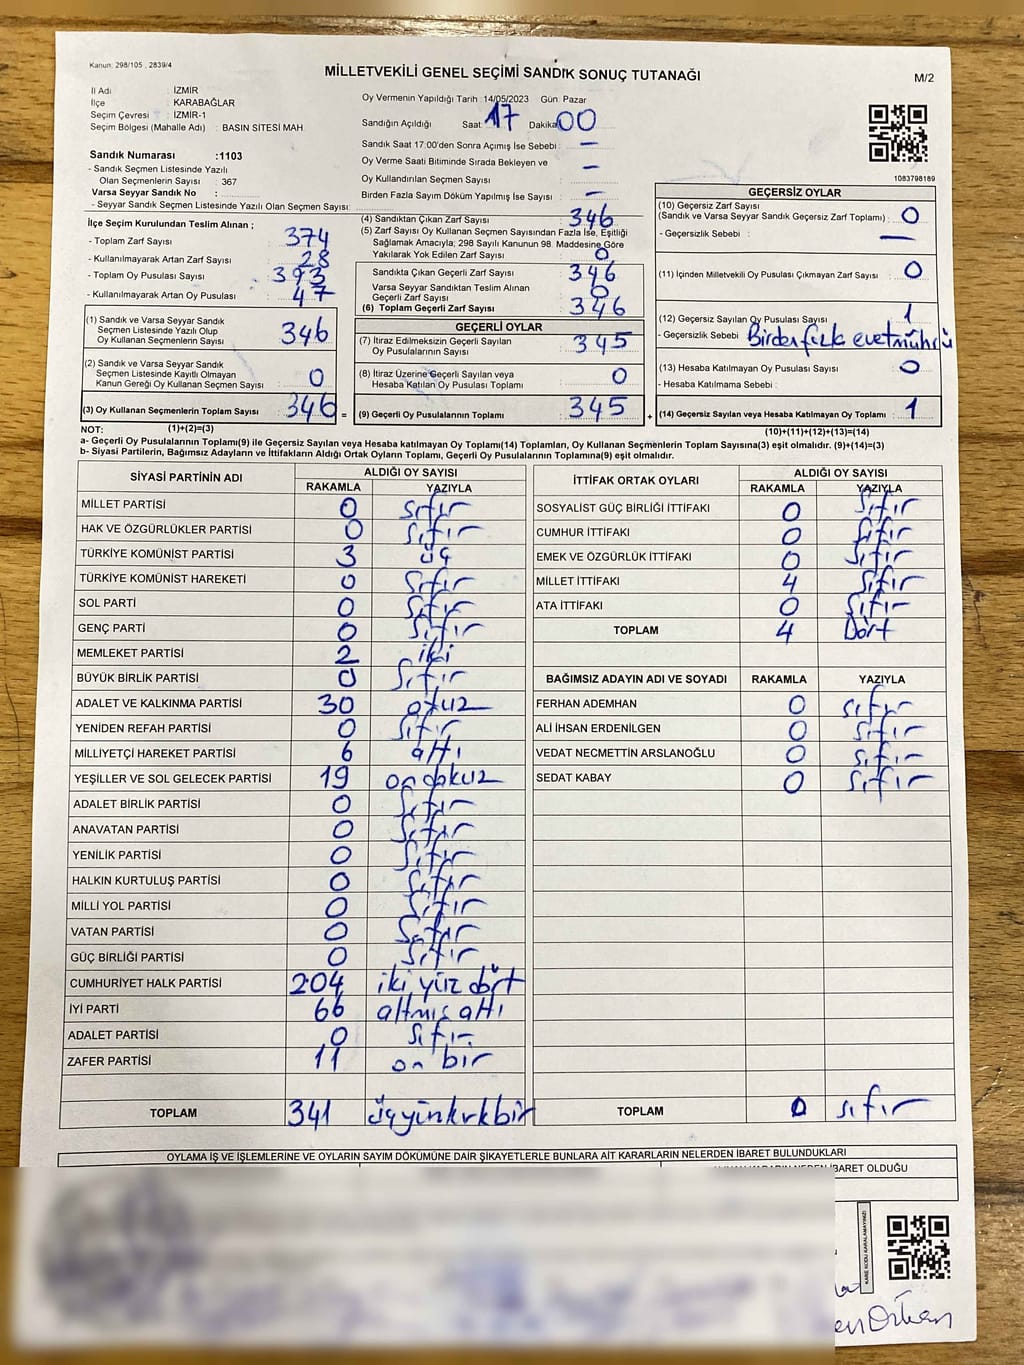 Kanun: 298/105 , 2839/4
MİLLETVEKİLİ GENEL SEÇİMİ SANDIK SONUÇ TUTANAĞI
M/2
İl Adı : İZMİR
İlçe : KARABAĞLAR
Seçim Çevresi : İZMİR-1
Seçim Bölgesi (Mahalle Adı) : BASIN SİTESİ MAH.
Sandık Numarası :1103
- Sandık Seçmen Listesinde Yazılı
Olan Seçmenlerin Sayısı : 367
Varsa Seyyar Sandık No :
- Seyyar Sandık Seçmen Listesinde Yazılı Olan Seçmen Sayısı:
Oy Vermenin Yapıldığı Tarih : 14/05/2023 Gün: Pazar
Sandığın Açıldığı Saat 17 Dakika 00
Sandık Saat 17:00'den Sonra Açımış İse Sebebi : –
Oy Verme Saati Bitiminde Sırada Bekleyen ve
Oy Kullandırılan Seçmen Sayısı –
Birden Fazla Sayım Döküm Yapılmış İse Sayısı : –
1083798189
İlçe Seçim Kurulundan Teslim Alınan ;
- Toplam Zarf Sayısı 374
- Kullanılmayarak Artan Zarf Sayısı 28
- Toplam Oy Pusulası Sayısı 393
- Kullanılmayarak Artan Oy Pusulası 47
(1) Sandık ve Varsa Seyyar Sandık
Seçmen Listesinde Yazılı Olup
Oy Kullanan Seçmenlerin Sayısı 346
(2) Sandık ve Varsa Seyyar Sandık
Seçmen Listesinde Kayıtlı Olmayan
Kanun Gereği Oy Kullanan Seçmen Sayısı 0
(3) Oy Kullanan Seçmenlerin Toplam Sayısı 346 =
(1)+(2)=(3)
(4) Sandıktan Çıkan Zarf Sayısı 346
(5) Zarf Sayısı Oy Kullanan Seçmen Sayısından Fazla İse, Eşitliği
Sağlamak Amacıyla; 298 Sayılı Kanunun 98. Maddesine Göre
Yakılarak Yok Edilen Zarf Sayısı : 0
Sandıkta Çıkan Geçerli Zarf Sayısı 346
Varsa Seyyar Sandıktan Teslim Alınan
Geçerli Zarf Sayısı 0
(6) Toplam Geçerli Zarf Sayısı 346
GEÇERLİ OYLAR
(7) İtiraz Edilmeksizin Geçerli Sayılan
Oy Pusulalarının Sayısı 345
(8) İtiraz Üzerine Geçerli Sayılan veya
Hesaba Katılan Oy Pusulası Toplamı 0
(9) Geçerli Oy Pusulalarının Toplamı 345 +
GEÇERSİZ OYLAR
(10) Geçersiz Zarf Sayısı
(Sandık ve Varsa Seyyar Sandık Geçersiz Zarf Toplamı) : 0
- Geçersizlik Sebebi : –
(11) İçinden Milletvekili Oy Pusulası Çıkmayan Zarf Sayısı : 0
(12) Geçersiz Sayılan Oy Pusulası Sayısı 1
- Geçersizlik Sebebi : Birden fazla evet mührü
(13) Hesaba Katılmayan Oy Pusulası Sayısı : 0
- Hesaba Katılmama Sebebi :
(14) Geçersiz Sayılan veya Hesaba Katılmayan Oy Toplamı 1
(10)+(11)+(12)+(13)=(14)
NOT:
a- Geçerli Oy Pusulalarının Toplamı(9) ile Geçersiz Sayılan veya Hesaba katılmayan Oy Toplamı(14) Toplamları, Oy Kullanan Seçmenlerin Toplam Sayısına(3) eşit olmalıdır. (9)+(14)=(3)
b- Siyasi Partilerin, Bağımsız Adayların ve İttifakların Aldığı Ortak Oyların Toplamı, Geçerli Oy Pusulalarının Toplamına(9) eşit olmalıdır.
SİYASİ PARTİNİN ADI ALDIĞI OY SAYISI
RAKAMLA YAZIYLA
MİLLET PARTİSİ 0 sıfır
HAK VE ÖZGÜRLÜKLER PARTİSİ 0 sıfır
TÜRKİYE KOMÜNİST PARTİSİ 3 üç
TÜRKİYE KOMÜNİST HAREKETİ 0 sıfır
SOL PARTİ 0 sıfır
GENÇ PARTİ 0 sıfır
MEMLEKET PARTİSİ 2 iki
BÜYÜK BİRLİK PARTİSİ 0 sıfır
ADALET VE KALKINMA PARTİSİ 30 otuz
YENİDEN REFAH PARTİSİ 0 sıfır
MİLLİYETÇİ HAREKET PARTİSİ 6 altı
YEŞİLLER VE SOL GELECEK PARTİSİ 19 on dokuz
ADALET BİRLİK PARTİSİ 0 sıfır
ANAVATAN PARTİSİ 0 sıfır
YENİLİK PARTİSİ 0 sıfır
HALKIN KURTULUŞ PARTİSİ 0 sıfır
MİLLİ YOL PARTİSİ 0 sıfır
VATAN PARTİSİ 0 sıfır
GÜÇ BİRLİĞİ PARTİSİ 0 sıfır
CUMHURİYET HALK PARTİSİ 204 iki yüz dört
İYİ PARTİ 66 altmış altı
ADALET PARTİSİ 0 sıfır
ZAFER PARTİSİ 11 on bir
TOPLAM 341
İTTİFAK ORTAK OYLARI ALDIĞI OY SAYISI
RAKAMLA YAZIYLA
SOSYALİST GÜÇ BİRLİĞİ İTTİFAKI 0 sıfır
CUMHUR İTTİFAKI 0 sıfır
EMEK VE ÖZGÜRLÜK İTTİFAKI 0 sıfır
MİLLET İTTİFAKI 4 sıfır
ATA İTTİFAKI 0 sıfır
TOPLAM 4 Dört
BAĞIMSIZ ADAYIN ADI VE SOYADI RAKAMLA YAZIYLA
FERHAN ADEMHAN 0 sıfır
ALİ İHSAN ERDENİLGEN 0 sıfır
VEDAT NECMETTİN ARSLANOĞLU 0 sıfır
SEDAT KABAY 0 sıfır
TOPLAM 0 sıfır
OYLAMA İŞ VE İŞLEMLERİNE VE OYLARIN SAYIM DÖKÜMÜNE DAİR ŞİKAYETLERLE BUNLARA AİT KARARLARIN NELERDEN İBARET BULUNDUKLARI
KARARIN NEDEN İBARET OLDUĞU
KARE KODU KARALAMAYINIZ!
Orkan